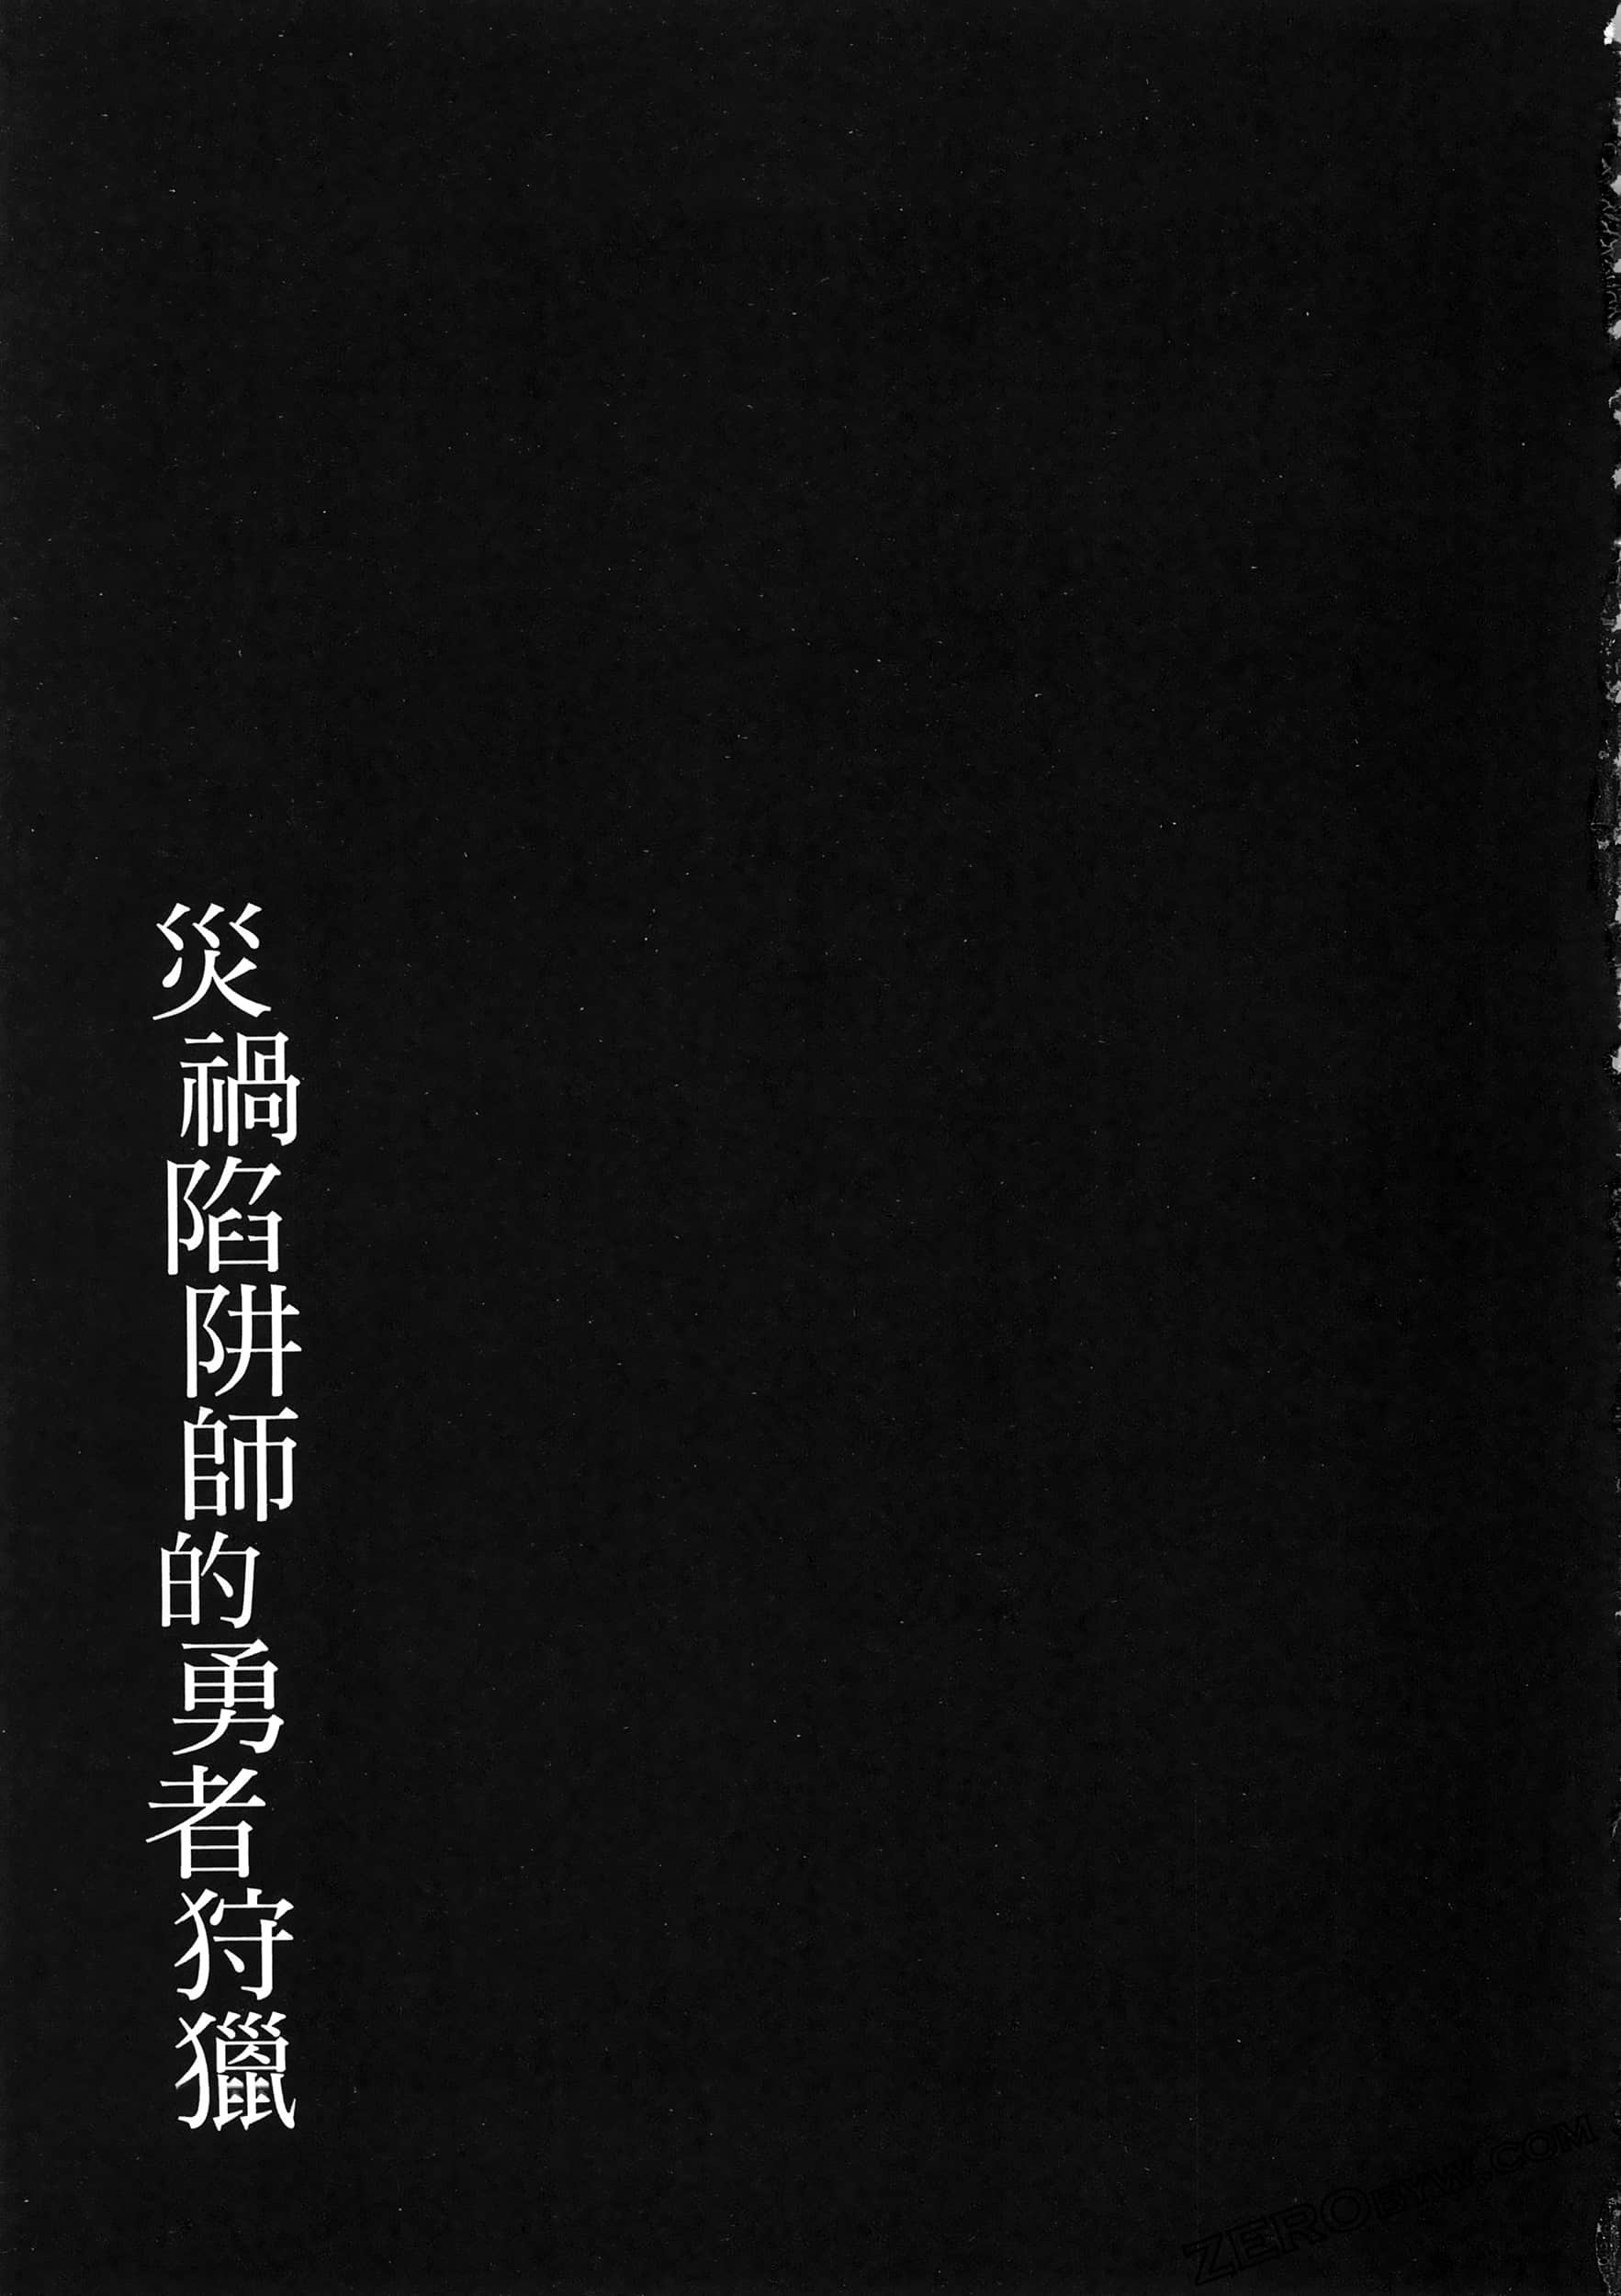 災禍陷阱師的勇者狩獵
ZEROBYW.COM